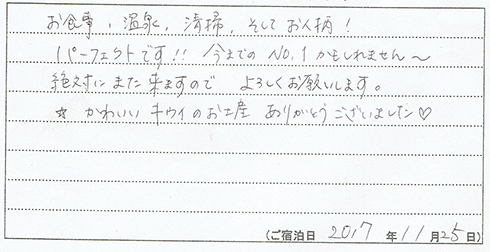 お食事、温泉、清掃、そしてお人柄！
パーフェクトです!! 今までのNO.1かもしれません〜
絶対にまた来ますので よろしくお願いします。
☆ かわいいキウイのお土産 ありがとうございました♡
(ご宿泊日 2017 年 11 月 25 日)